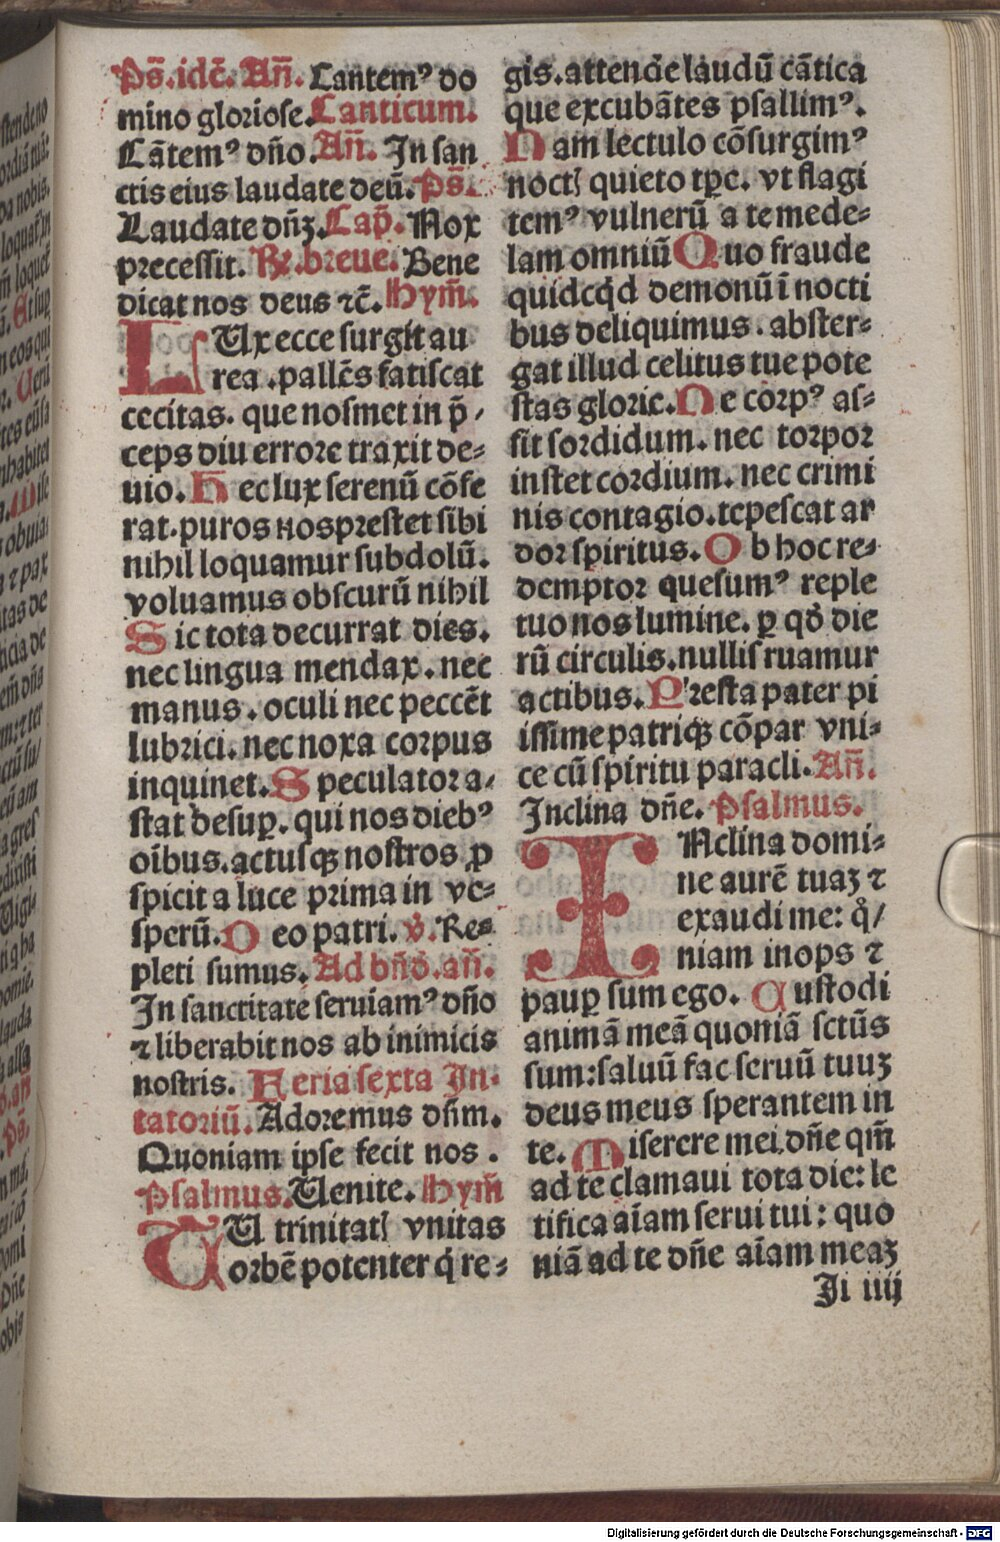 Ps̄. idē. Añ. Cantemꝰ do
mino gloriose. Canticum.
Cātemꝰ dño. Añ. In san
ctis eius laudate deū. Ps̄.
Laudate dñꝫ. Cap̄. Nox
precessit. R̸. breue. Bene
dicat nos deus ⁊c̄. Hym̄.
LUx ecce surgit au
rea .pallēs fatiscat
cecitas. que nosmet in p̄ /
ceps diu errore traxit de⸗
uio. Hec lux serenū cōfe
rat. puros nos prestet sibi
nihil loquamur subdolū.
voluamus obscurū nihil
Sic tota decurrat dies.
nec lingua mendax. nec
manus. oculi nec peccēt
lubrici. nec noxa corpus
inquinet. Speculator a⸗
stat desuꝑ. qui nos diebꝰ
oībus. actusqꝫ nostros ꝓ
spicit a luce prima in ve⸗
sperū. Deo patri. v̓. Re⸗
pleti sumus. Ad bñd̄. añ.
In sanctitate seruiamꝰ dño
⁊ liberabit nos ab inimicis
nostris. Feria sexta In⸗
tatoriū. Adoremus dñm.
Quoniam ipse fecit nos .
Psalmus. Uenite. Hym̄
TU trinitatꝭ vnitas
orbē potenter q̇ re⸗
gis. attende laudū cātica
que excubātes psallimꝰ.
Nam lectulo cōsurgimꝰ
noctꝭ quieto tꝑe. vt flagi
temꝰ vulnerū a te mede⸗
lam omniū Quo fraude
quidcq̇d demonū ī nocti
bus deliquimus. abster⸗
gat illud celitus tue pote
stas glorie. Ne corpꝰ as⸗
sit sordidum. nec torpor
instet cordium. nec crimi
nis contagio. tepescat ar
dor spiritus. Ob hoc re⸗
demptor quesumꝰ reple
tuo nos lumine. ꝑ qd̄ die
rū circulis. nullis ruamur
actibus. Presta pater pi
issime patriqꝫ cōpar vni⸗
ce cū spiritu paracli. Añ.
Inclina dñe. Psalmus.
INclina domi⸗
ne aurē tuaꝫ ⁊
exaudi me: q̊ /
niam inops ⁊
pauꝑ sum ego. Custodi
animā meā quoniā sctūs
sum: saluū fac seruū tuuꝫ
deus meus sperantem in
te. Miserere mei dñe qm̄
ad te clamaui tota die: le
tifica aīam serui tui: quo
niā ad te dñe aīam meaꝫ
Ii iiij
Digitalisierung gefördert durch die Deutsche Forschungsgemeinschaft - DFG